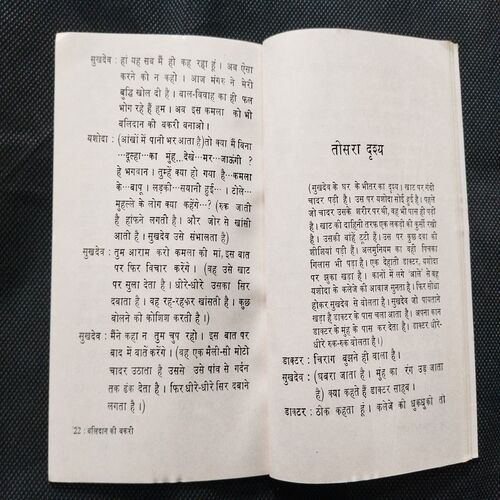 सुखदेव : हां यह सब मैं ही कह रहा हूं । अब ऐसा
करने को न कहो । आज मंगरु ने मेरी
बुद्धि खोल दी है । बाल-विवाह का ही फल
भोग रहे हैं हम । अब इस कमला को भी
बलिदान की बकरी न बनाओ ।
यशोदा : (आंखों में पानी भर आता है) तो क्या मैं बिना
...दूल्हा...का मुंह...देखे...मर...जाऊंगी ?
हे भगवान । तुम्हें क्या हो गया है...कमला
के...बापू । लड़की...सयानी हुई... । टोले...
मुहल्ले के लोग क्या कहेंगे...? (रुक जाती
है हांफने लगती है । और जोर से खांसी
आती है । सुखदेव उसे संभालता है)
सुखदेव : तुम आराम करो कमला की मां, इस बात
पर फिर विचार करेंगे । (वह उसे खाट
पर सुला देता है । धीरे-धीरे उसका सिर
दबाता है । वह रह-रहकर खांसती है । कुछ
बोलने की कोशिश करती है ।)
सुखदेव : मैंने कहा न तुम चुप रहो । इस बात पर
बाद में बातें करेंगे । (वह एक मैली-सी मोटी
चादर उठाता है उससे उसे पांव से गर्दन
तक ढंक देता है । फिर धीरे-धीरे सिर दबाने
लगता है ।)
22 : बलिदान की बकरी
तीसरा दृश्य
(सुखदेव के घर के भीतर का दृश्य । खाट पर गंदी
चादर पड़ी है । उस पर यशोदा सोई हुई है । पहले
जो चादर उसके शरीर पर थी, वह भी पास ही पड़ी
है । खाट की दाहिनी तरफ एक लकड़ी की कुर्सी रखी
है । उसकी बांहें टूटी है । उस पर कुछ दवा की
शीशियां पड़ी हैं । अलमुनियम का वही पिचका
गिलास भी पड़ा है । एक देहाती डाक्टर, यशोदा
पर झुका खड़ा है । कानों में लगे 'आले' से वह
यशोदा के कलेजे की आवाज सुनता है । फिर सीधा
होकर सुखदेव से बोलता है । सुखदेव जो पायताने
खड़ा है डाक्टर के पास चला आता है । अपना कान
डाक्टर के मुंह के पास कर देता है । डाक्टर धीरे-
धीरे रुक-रुक बोलता है ।)
डाक्टर : चिराग बुझने ही वाला है ।
सुखदेव : (घबरा जाता है । मुंह का रंग उड़ जाता
है) क्या कहते हैं डाक्टर साहब ।
डाक्टर : ठीक कहता हूं । कलेजे की धुकधुकी तो